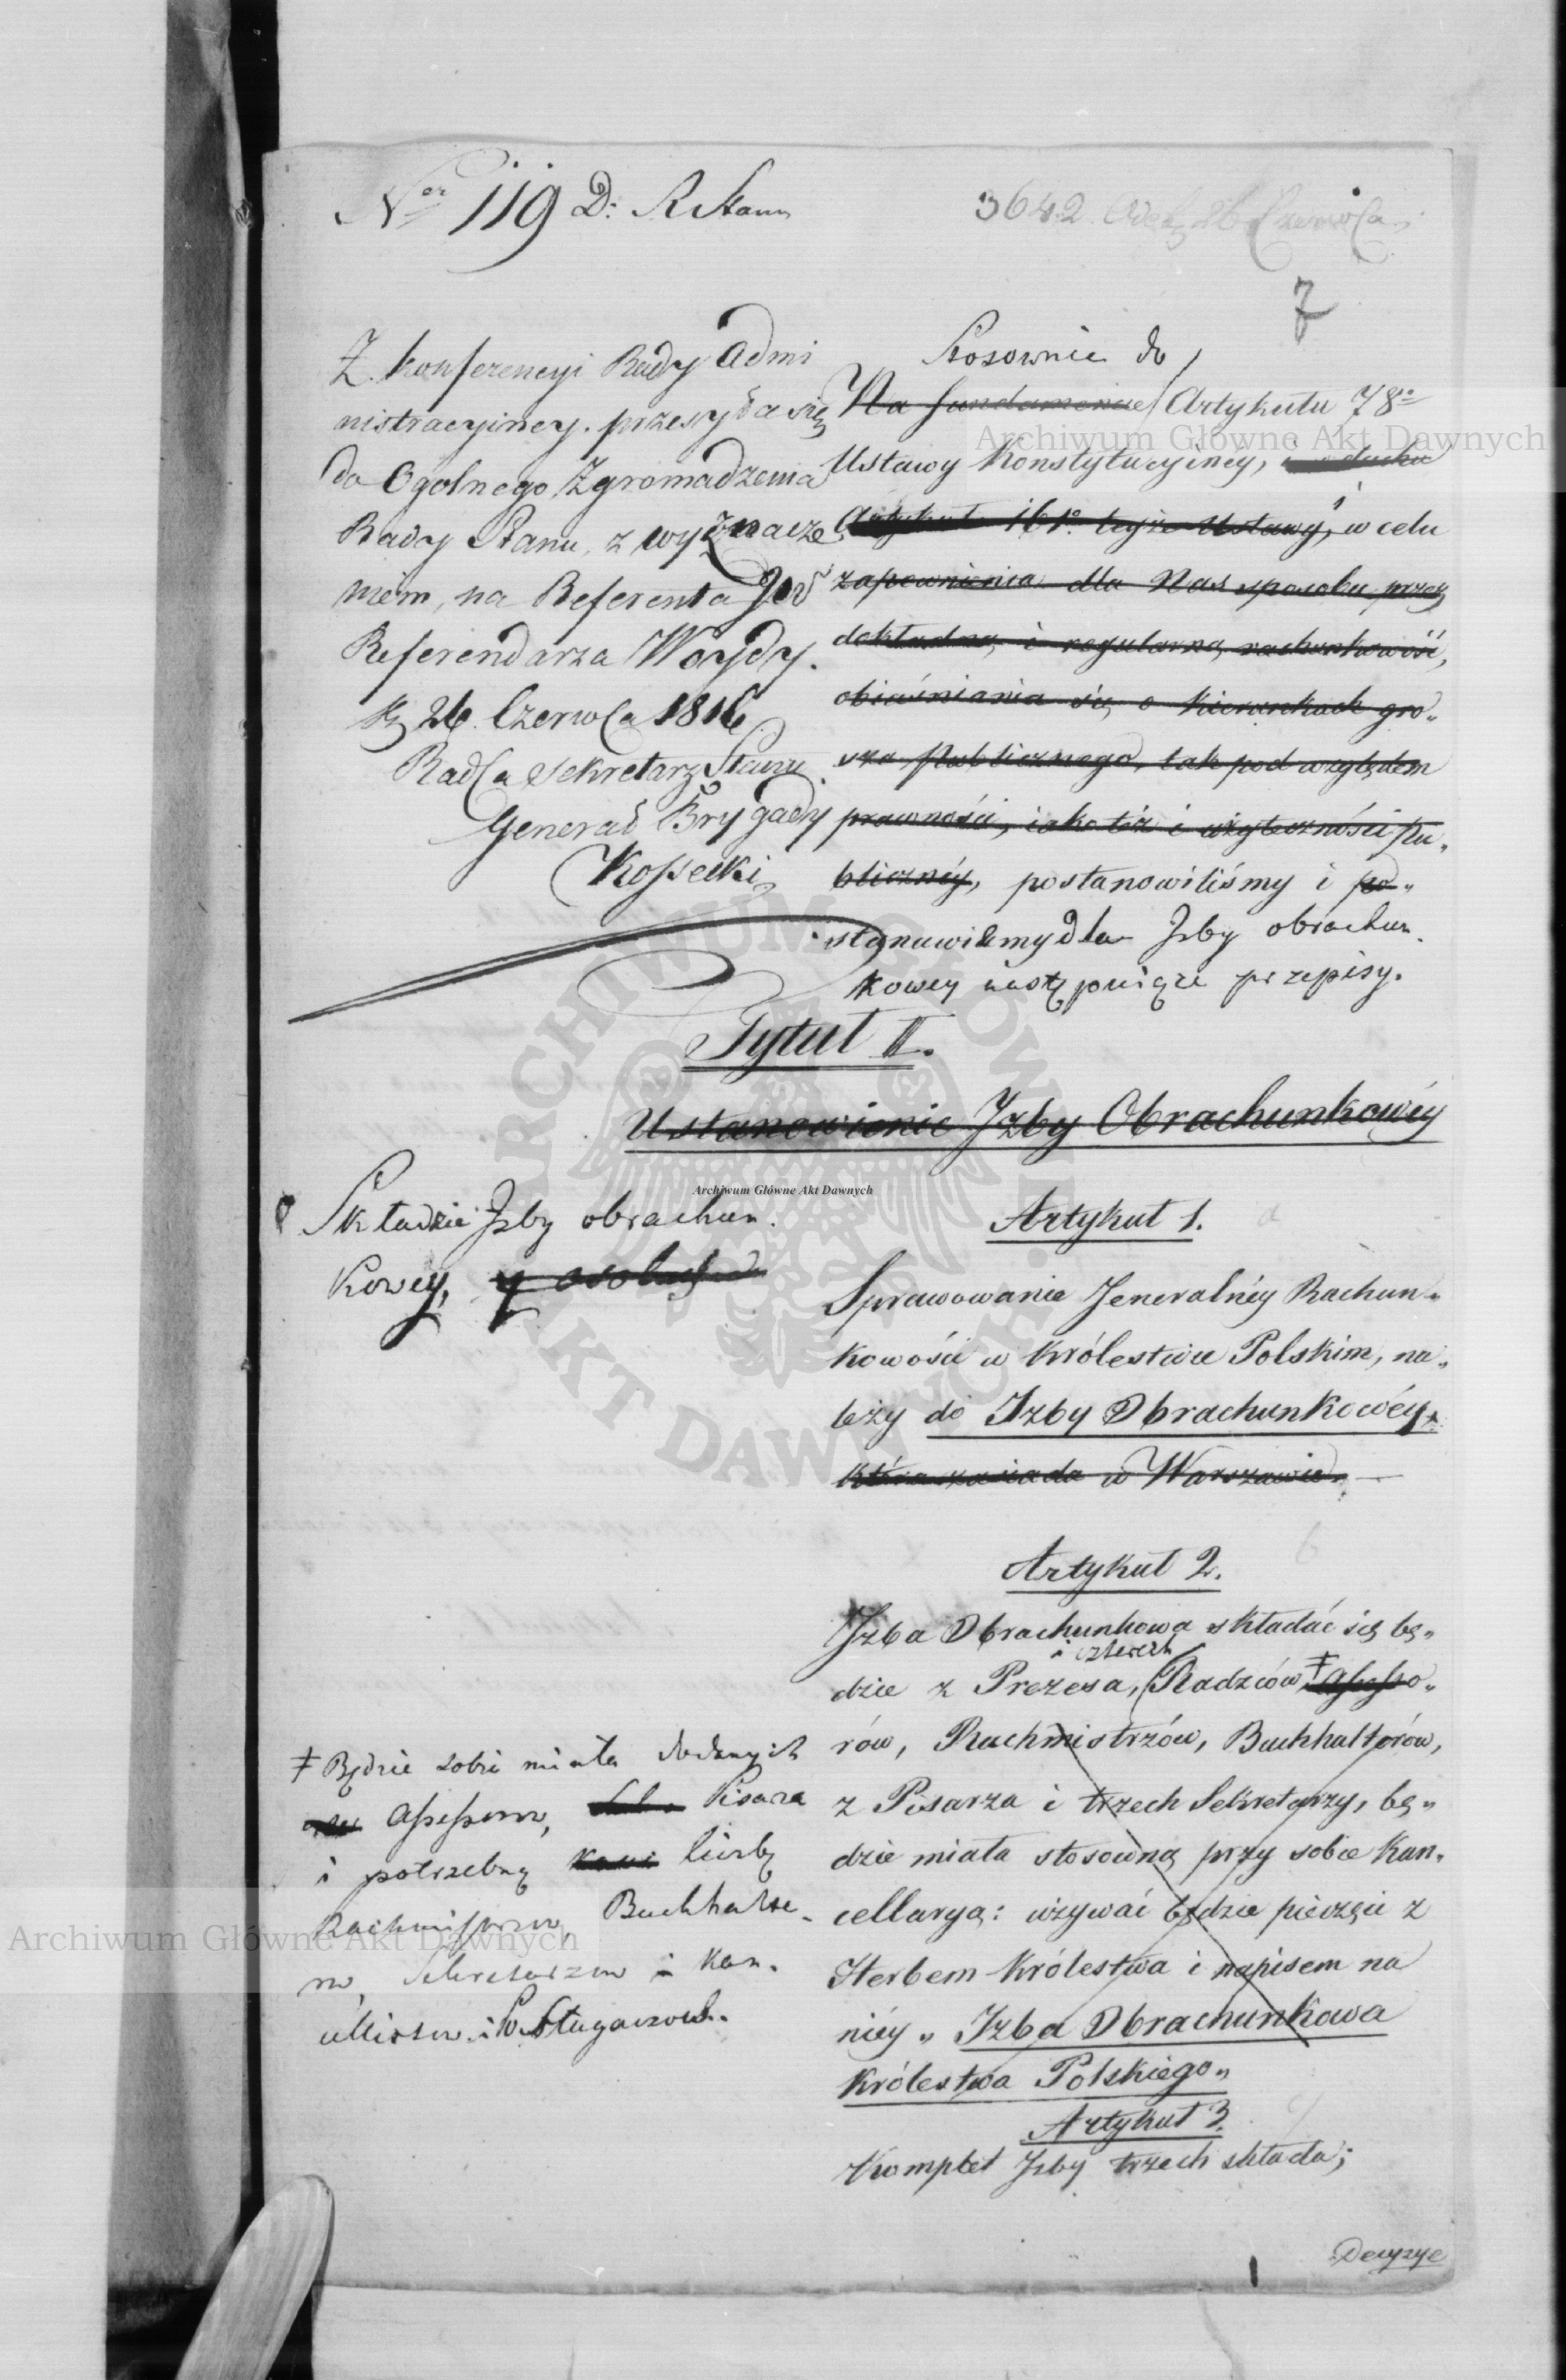 Ner 119 D: R Stanu
3642
7
Z konferencyi Rady Admi
nistracyiney. przesyła się
do Ogolnego Zgromadzenia
Rady Stanu, z wyznacze
niem, na Referenta JW
Referendarza Woydy.
26 Czerwca 1816
Radca Sekretarz Stanu
Generał Brygady
Kossecki
Stosownie do
Na fundamencie Artykułu 78o
Ustawy Konstytucyinéy, i w duchu
Artykułu 161o teyże Ustawy, i w celu
zapewnienia dla Nas sposobu przez
dokładną i regularną rachunkowość,
obiaśniania się o kierunkach gro„
sza Publicznego, tak pod względem
prawności, iako też i użyteczności Pu„
blicznéy, postanowiliśmy i po„
stanawiamy dla Izby obrachun
kowey następuiące przepisy.
Tytuł II.
Ustanowienie Izby Obrachunkowéy
Składzie Izby obrachun.
kowey,
Artykuł 1.
Sprawowanie Jeneralnéy Rachun„
kowości w Królestwie Polskim, na„
leży do Izby Obrachunkowéy,
która zasiada w Warszawie.
Artykuł 2.
Izba Obrachunkowa składać się bę„
i czterech
dzie z Prezesa, Radzców ‡ Assesso„
rów, Rachmistrzów, Buchhalterów,
z Pisarza i trzech Sekretarzy, bę„
dzie miała stosowną przy sobie Kan„
cellaryą: używać będzie pieczęci z
Herbem Królestwa i napisem na
niéy „ Izba Obrachunkowa
Królestwa Polskiego„
‡ Będzie sobie miała dodanych
Assessorow, Pisarza
i potrzebną liczbę
Rachmistrzow, Buchhalte
row, Sekretarzow i Kan.
cellistow i Posługaczow.
Artykuł 3.
Komplet Izby trzech składa;
Decyzye
1
Archiwum Główne Akt Dawnych
Archiwum Główne Akt Dawnych
Archiwum Główne Akt Dawnych
ARCHIWUM GŁÓWNE AKT DAWNYCH